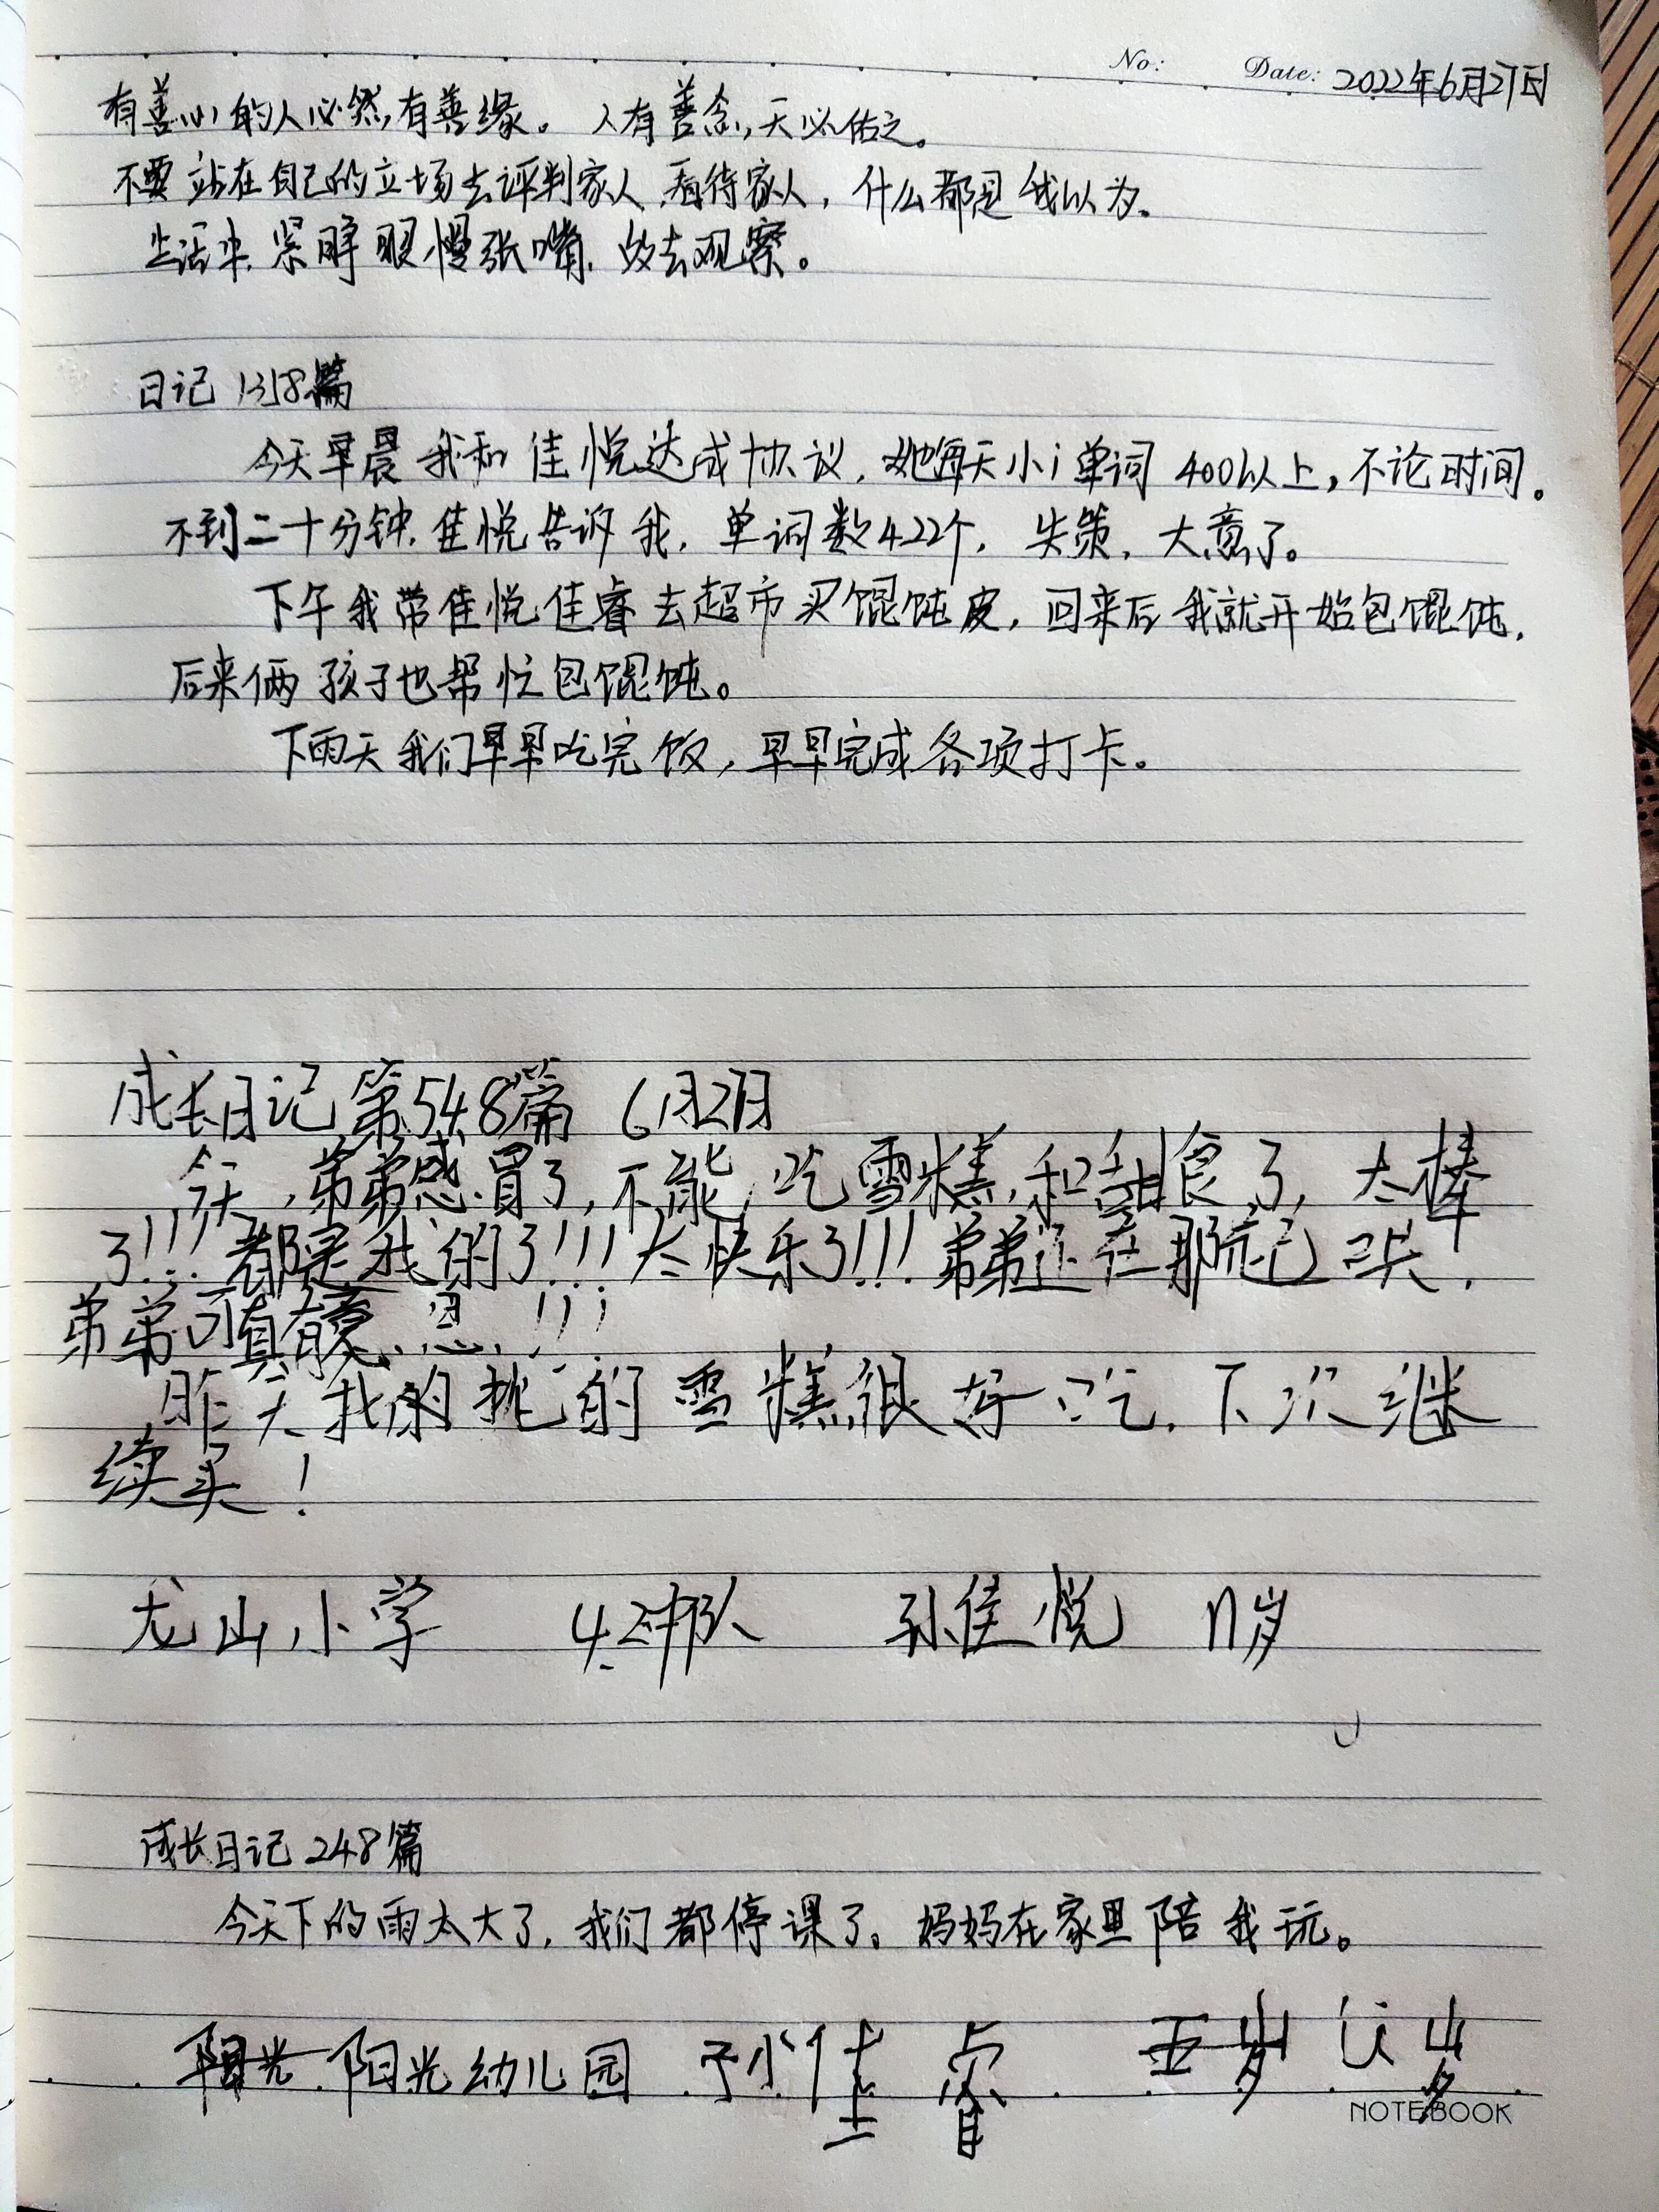 No: Date: 2022年6月27日
有善心的人必然有善缘。 人有善念,天必佑之。
不要站在自己的立场去评判家人、看待家人，什么都是我以为。
生活中，紧睁眼慢张嘴，多去观察。
日记 1318篇
今天早晨我和佳悦达成协议，她每天小i单词400以上，不论时间。
不到二十分钟，佳悦告诉我，单词数422个，失策，大意了。
下午我带佳悦佳睿去超市买馄饨皮，回来后我就开始包馄饨，
后来俩孩子也帮忙包馄饨。
下雨天我们早早吃完饭，早早完成各项打卡。
成长日记第548篇 6月27日
今天，弟弟感冒了，不能吃雪糕和甜食了，太棒
了!!!都是我的了!!!太快乐了!!!弟弟还在那 哭，
弟弟可真有意思!!!
昨天我的挑的雪糕很好吃，下次继
续买！
龙山小学 4.2中队 孙佳悦 11岁
成长日记 248篇
今天下的雨太大了，我们都停课了。妈妈在家里陪我玩。
阳光 阳光幼儿园 孙佳睿 五岁 岁
NOTEBOOK